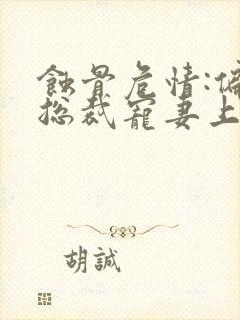 蝕骨危情:偏
總裁寵妻上
胡誠